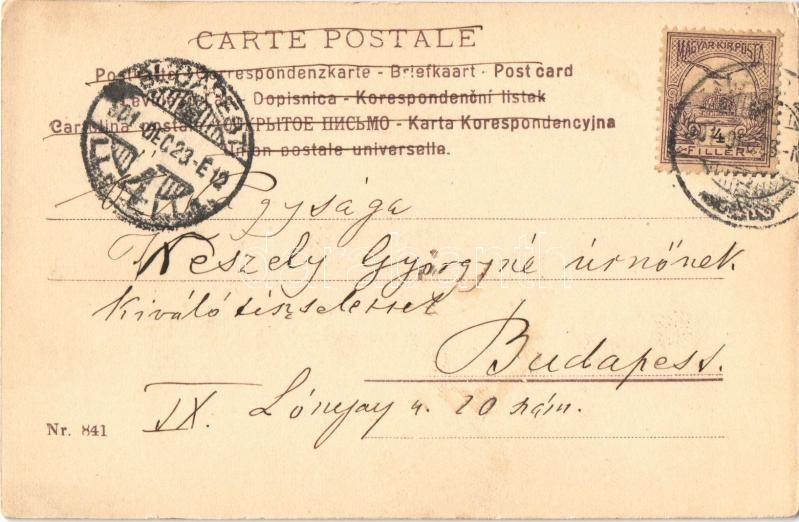 CARTE POSTALE
Postkarte - Correspondenzkarte - Briefkaart - Post card
Dopisnica - Korespondenční listek
Cartolina postale - ОТКРЫТОЕ ПИСЬМО - Karta Korespondencyjna
Union postale universelle.
MAGYAR·KIR·POSTA
4
FILLÉR
BUDAPEST
901 DEC 23 - E 12
4
Nagysága
Keszely Györgyné úrnőnek
kiváló tisztelettel
Budapest.
IX. Lónyay u. 20 szám.
Nr. 841
darabanth